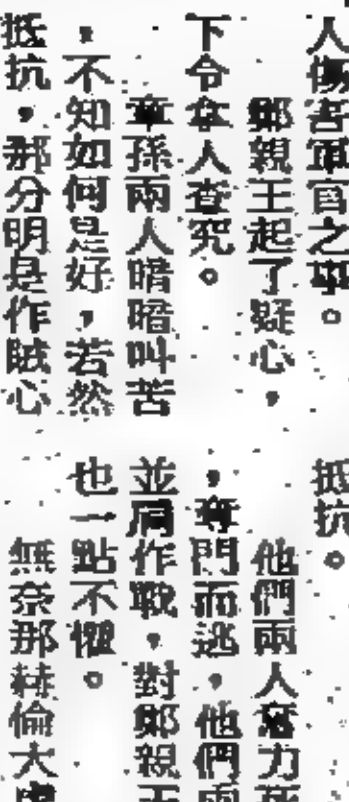 人傷害軍官之事。
鄭親王起了疑心，
下令拿人查究。
章孫兩人暗暗叫苦
，不知如何是好，若然
抵抗，那分明是作賊心
抵抗。
他們兩人奮力
，奪門而逃，他們
並肩作戰，對鄭親王
也一點不懼。
無奈那赫倫大